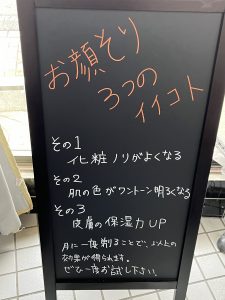 お顔そり
3つの
イイコト
その1
化粧ノリがよくなる
その2
肌の色がワントーン明るくなる
その3
皮膚の保湿力UP
月に一度剃ることで、より以上の
効果が得られます。
ぜひ一度お試し下さい。